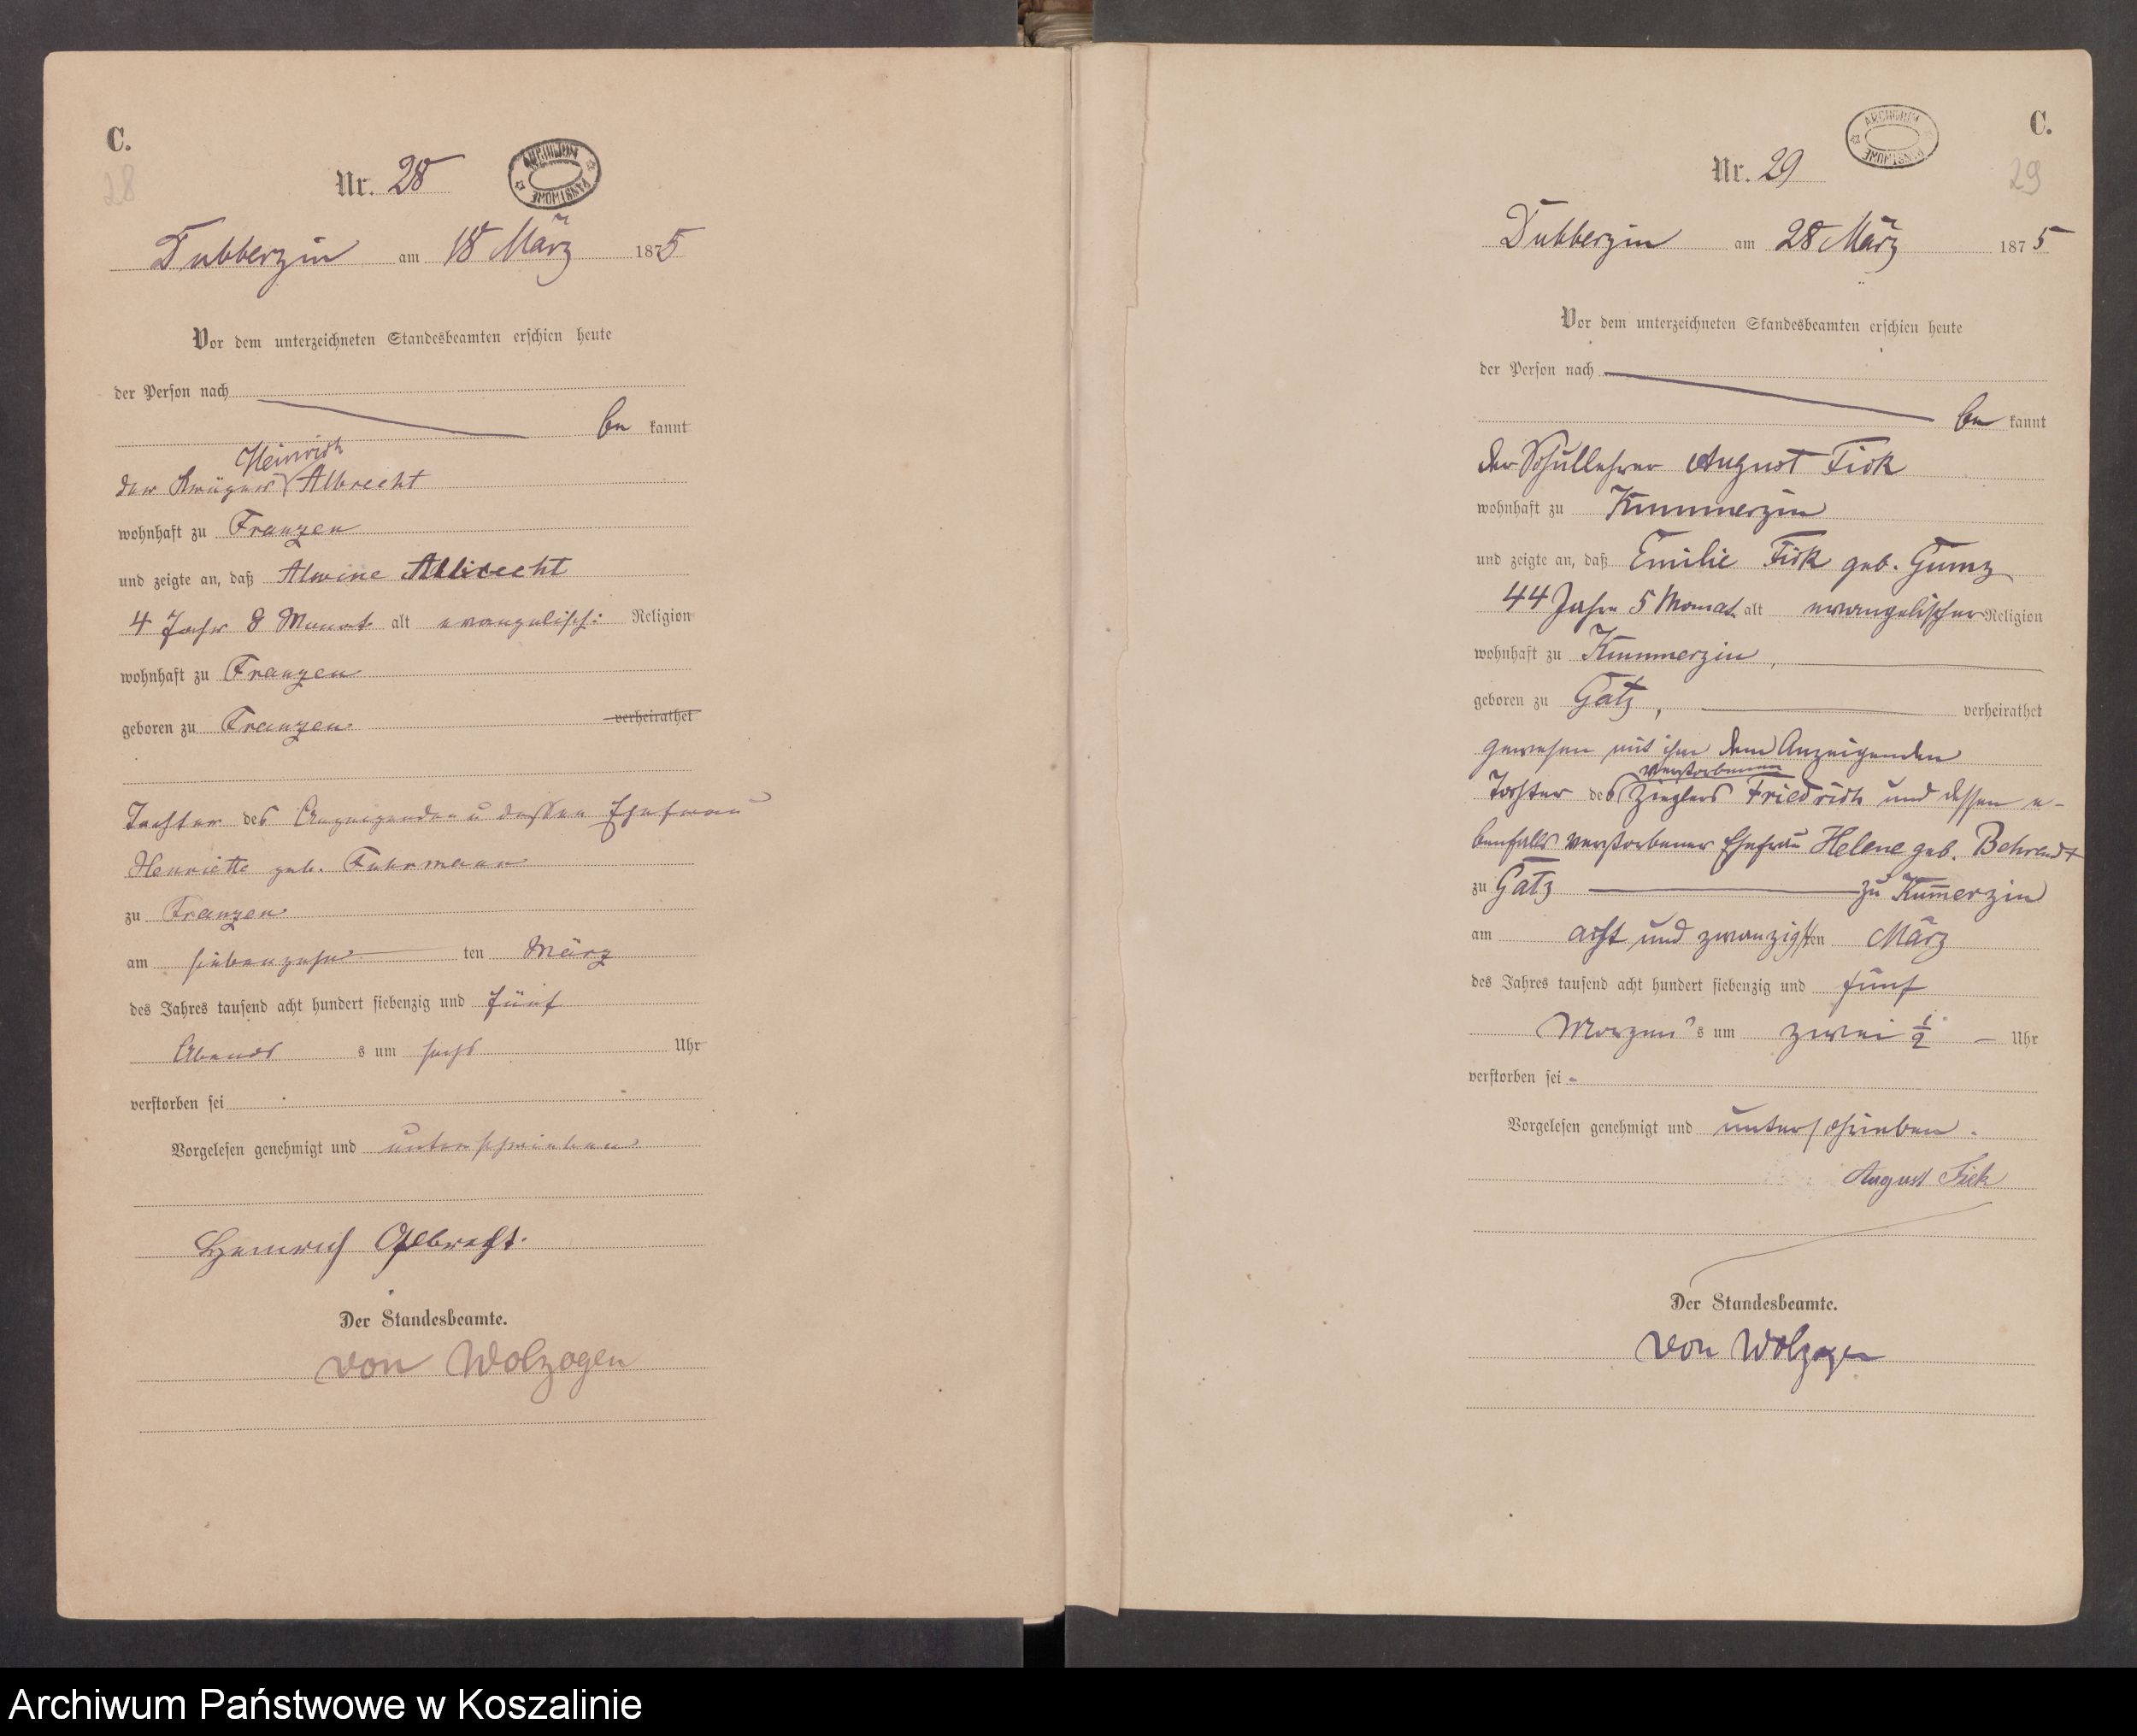 C.
28
Nr. 28
ARCHIWUM PAŃSTWOWE
Dubberzin am 18 März 1875
Vor dem unterzeichneten Standesbeamten erschien heute
der Person nach
be kannt
Heinrich
der Krüger Albrecht
wohnhaft zu Franzen
und zeigte an, daß Alwine Albrecht
4 Jahr 8 Monat alt evangelisch: Religion
wohnhaft zu Franzen
geboren zu Franzen verheirathet
Tochter des Anzeigenden u dessen Ehefrau
Henriette geb. Fuhrmann
zu Franzen
am siebenzehn ten März
des Jahres tausend acht hundert siebenzig und fünf
Abends s um sechs Uhr
verstorben sei
Vorgelesen genehmigt und unterschrieben
Heinrich Albrecht.
Der Standesbeamte.
von Wolzogen
C.
29
Nr. 29
ARCHIWUM PAŃSTWOWE
Dubberzin am 28 März 1875
Vor dem unterzeichneten Standesbeamten erschien heute
der Person nach
be kannt
der Schullehrer August Fick
wohnhaft zu Kummerzin
und zeigte an, daß Emilie Fick geb. Gumz
44 Jahre 5 Monat alt evangelischer Religion
wohnhaft zu Kummerzin,
geboren zu Gatz, verheirathet
gewesen mit ihm dem Anzeigenden
verstorbenen
Tochter des Zieglers Friedrich und dessen e-
benfalls verstorbener Ehefrau Helene geb. Behrendt
zu Gatz zu Kum̄erzin
am acht und zwanzigsten März
des Jahres tausend acht hundert siebenzig und fünf
Morgen s um zwei ½ Uhr
verstorben sei
Vorgelesen genehmigt und unterschrieben.
August Fick
Der Standesbeamte.
von Wolzogen
Archiwum Państwowe w Koszalinie